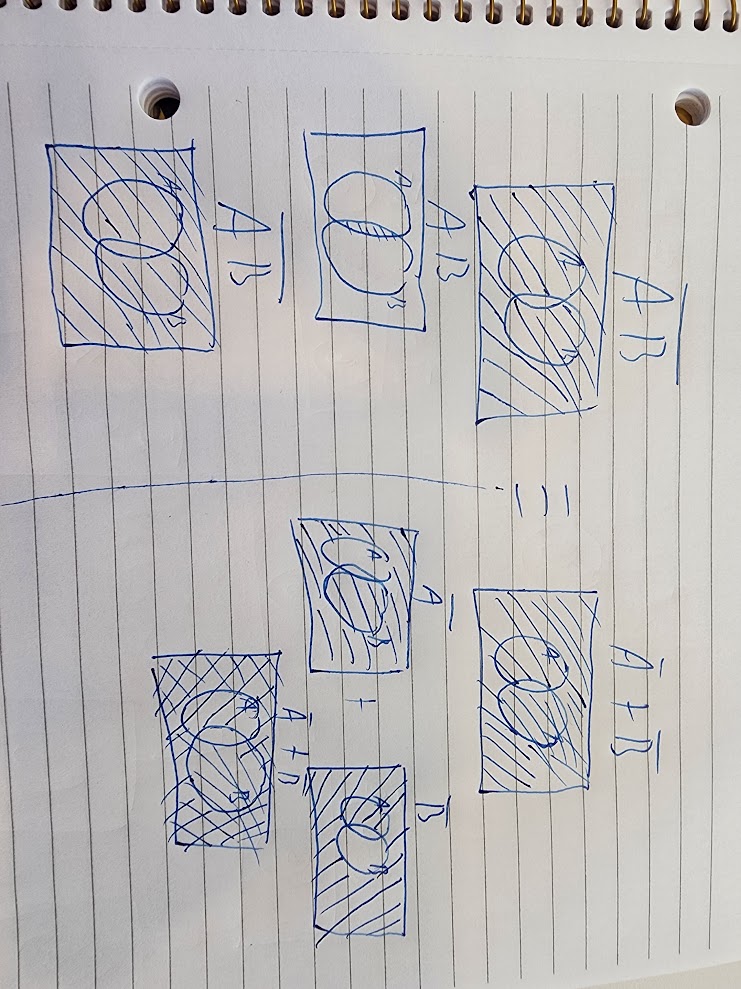 A̅B̅ ≡ A̅ + B̅
A B A B
AB A̅ + B̅
A B A B A B
A̅B̅ A̅ + B̅
A B A B